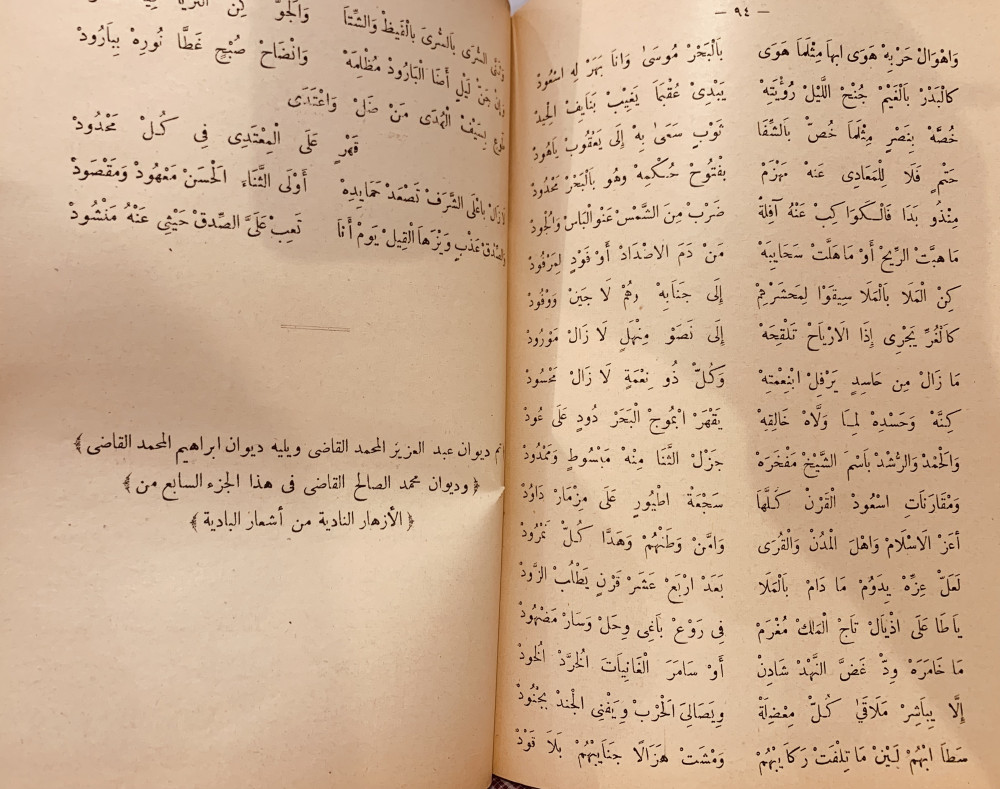 — ٩٤ —
وَاهْوَالْ حَرْبِهْ هَوَى ابهَا مِثْلَمَا هَوَى بِالْبَحَرْ مُوسَىٰ وَانَا بَهَرْ لِه اسْعُودْ
كَالْبَدْرْ بَالْغَيْمْ جُنْحْ اللَّيْلْ رُؤْيَتِهْ يَبْدِى عُقْبَمَا يَغِيبْ بَنَايِفْ الْحِيدْ
خُصَّهْ بِنَصْرٍ مِثْلَمَا خُصّ بَالشِّفَا ثَوْبٍ سَعَىٰ بِهْ إِلَى يَعْقُوبْ يَاهُودْ
حَتْمٍ فَلَا لِلْمَعَادِى عَنه مَهْزَمْ بِفْتُوحْ حُكْمِهْ وهُو بَالْبَحَرْ مَحْدُودْ
مِنْذُو بَدَا فَالْكَوَاكِبْ عَنْهُ آفِلَةْ ضَرْبْ مِنَ الشَّمْسْ عَنْوْ الْبَاسْ وَالْجُودْ
مَا هَبَّتْ الرِّيحْ أَوْ مَا هَلَّتْ سَحَايِبِهْ مَنْ دَمّ الاضْدَادْ أَوْ فَوْدٍ لِمَرْفُودْ
كِنْ الْمَلَا بَالْمَلَا سِيقَوْا لِمَحْشَرْهِمْ إِلَى جَنَابِهْ رِهُمْ لَا جَيَنْ وَوْفُودْ
كَالْغُرّ يَجْرِى إِذَا الَارْيَاحْ تَلْقِحَهْ إِلَى نَصَوْ ومِنْهَلٍ لَا زَالْ مَوْرُودْ
مَا زَالْ مِن حَاسِدٍ يَرْفِلْ ابْنِعْمِتِهْ وَكُلّ ذُو نِعْمَةٍ لَا زَالْ مَحْسُودْ
كِنَّهْ وَحَسْدِهْ لِمَا وَلَّاه خَالِقِهْ يَقْهَرْ ابْمُوجْ الْبَحَرْ دُودٍ عَلَى عُودْ
وَالْحَمْدْ وَالرُّشْدْ بَاسْمَ الشَّيْخْ مَفْخَرَهْ جَزْلْ الثَّنَا مِنْهْ مَبْسُوطٍ وَمَمْدُودْ
وَمْقَارَنَاتِ اسْعُودْ الْقَرْنْ كِلَّهَا سَجْعَةْ اطْيُورٍ عَلَى مِزْمَارْ دَاوُدْ
أعَزّ الَاسْلَامْ وَاهْلَ الْمُدْنْ وَالْقُرَى وَامَنْ وَطَنْهُمْ وَهَدَّا كُلّ نَمْرُودْ
لَعَلّ عِزِّهْ يِدَوُمْ مَا دَامْ بَالْمَلَا بَعَدْ ارْبَعْ عَشَرْ قَرْنٍ يَطْلُبْ الزَّودْ
يَاطَا عَلَى اذْيَالْ تَاجْ الْمَلكْ مُغْرَمْ فِى رَوْعْ بَاغِى وِحَلّ وَسَارْ مَضْهُودْ
مَا خَامَرَهْ وِدّ غَضّ النَّهْدْ شَادِنْ أَوْ سَامَرَ الْغَانِيَاتَ الْخرَّدْ الْخُودْ
إِلَّا يِبَاشِرْ مَلَاقِىْ كُلّ مِعْضِلَةْ وِيصَالِىَ الْحَرْبْ وِيَفْنِى الْجَنْد بِجْنُودْ
سَطَا ابْهُمْ لَيْنْ مَا تِلْفَتْ رَكَايِبْهُمْ وَمْشَتْ هْزَالَا جَنَايِبْهُمْ بَلَا قَوْدْ
السُّرَى بَالسُّرَى بَالْقَيظْ وَالشِّتَا وَالْجَوّ كِن
لَيْلٍ أَضَا الْبَارُودْ مُظْلِمَهْ وَانْضَاحْ صُبْحٍ غَطَّا نُورِهْ بِبَارُودْ
بِسَيْفْ الْهُدَى مَنْ ضَلّ وَاعْتَدَى قَهْرٍ عَلَى الْمِعْتَدِى فِى كُلّ مَحْدُودْ
لَازَالْ بَاعْلَى الشَّرَفْ تَصْعَدْ حَمَايِدِهْ أَوْلَى الثَّنَاءَ الْحَسَنْ مَعْهُودْ وَمَقْصَودْ
وَالصِّدْقْ عَذْبٍ وَيَزْهَا الْقِيلْ يَوْمْ أَنَا تَعِبْ عَلَىَّ الصِّدقْ حَيْثِى عَنْهُ مَنْشُودْ
تم ديوان عبد العزيز المحمد القاضى ويليه ديوان ابراهيم المحمد القاضى ﴾
﴿ وديوان محمد الصالح القاضى فى هذا الجزء السابع من ﴾
﴿ الأزهار النادية من أشعار البادية ﴾